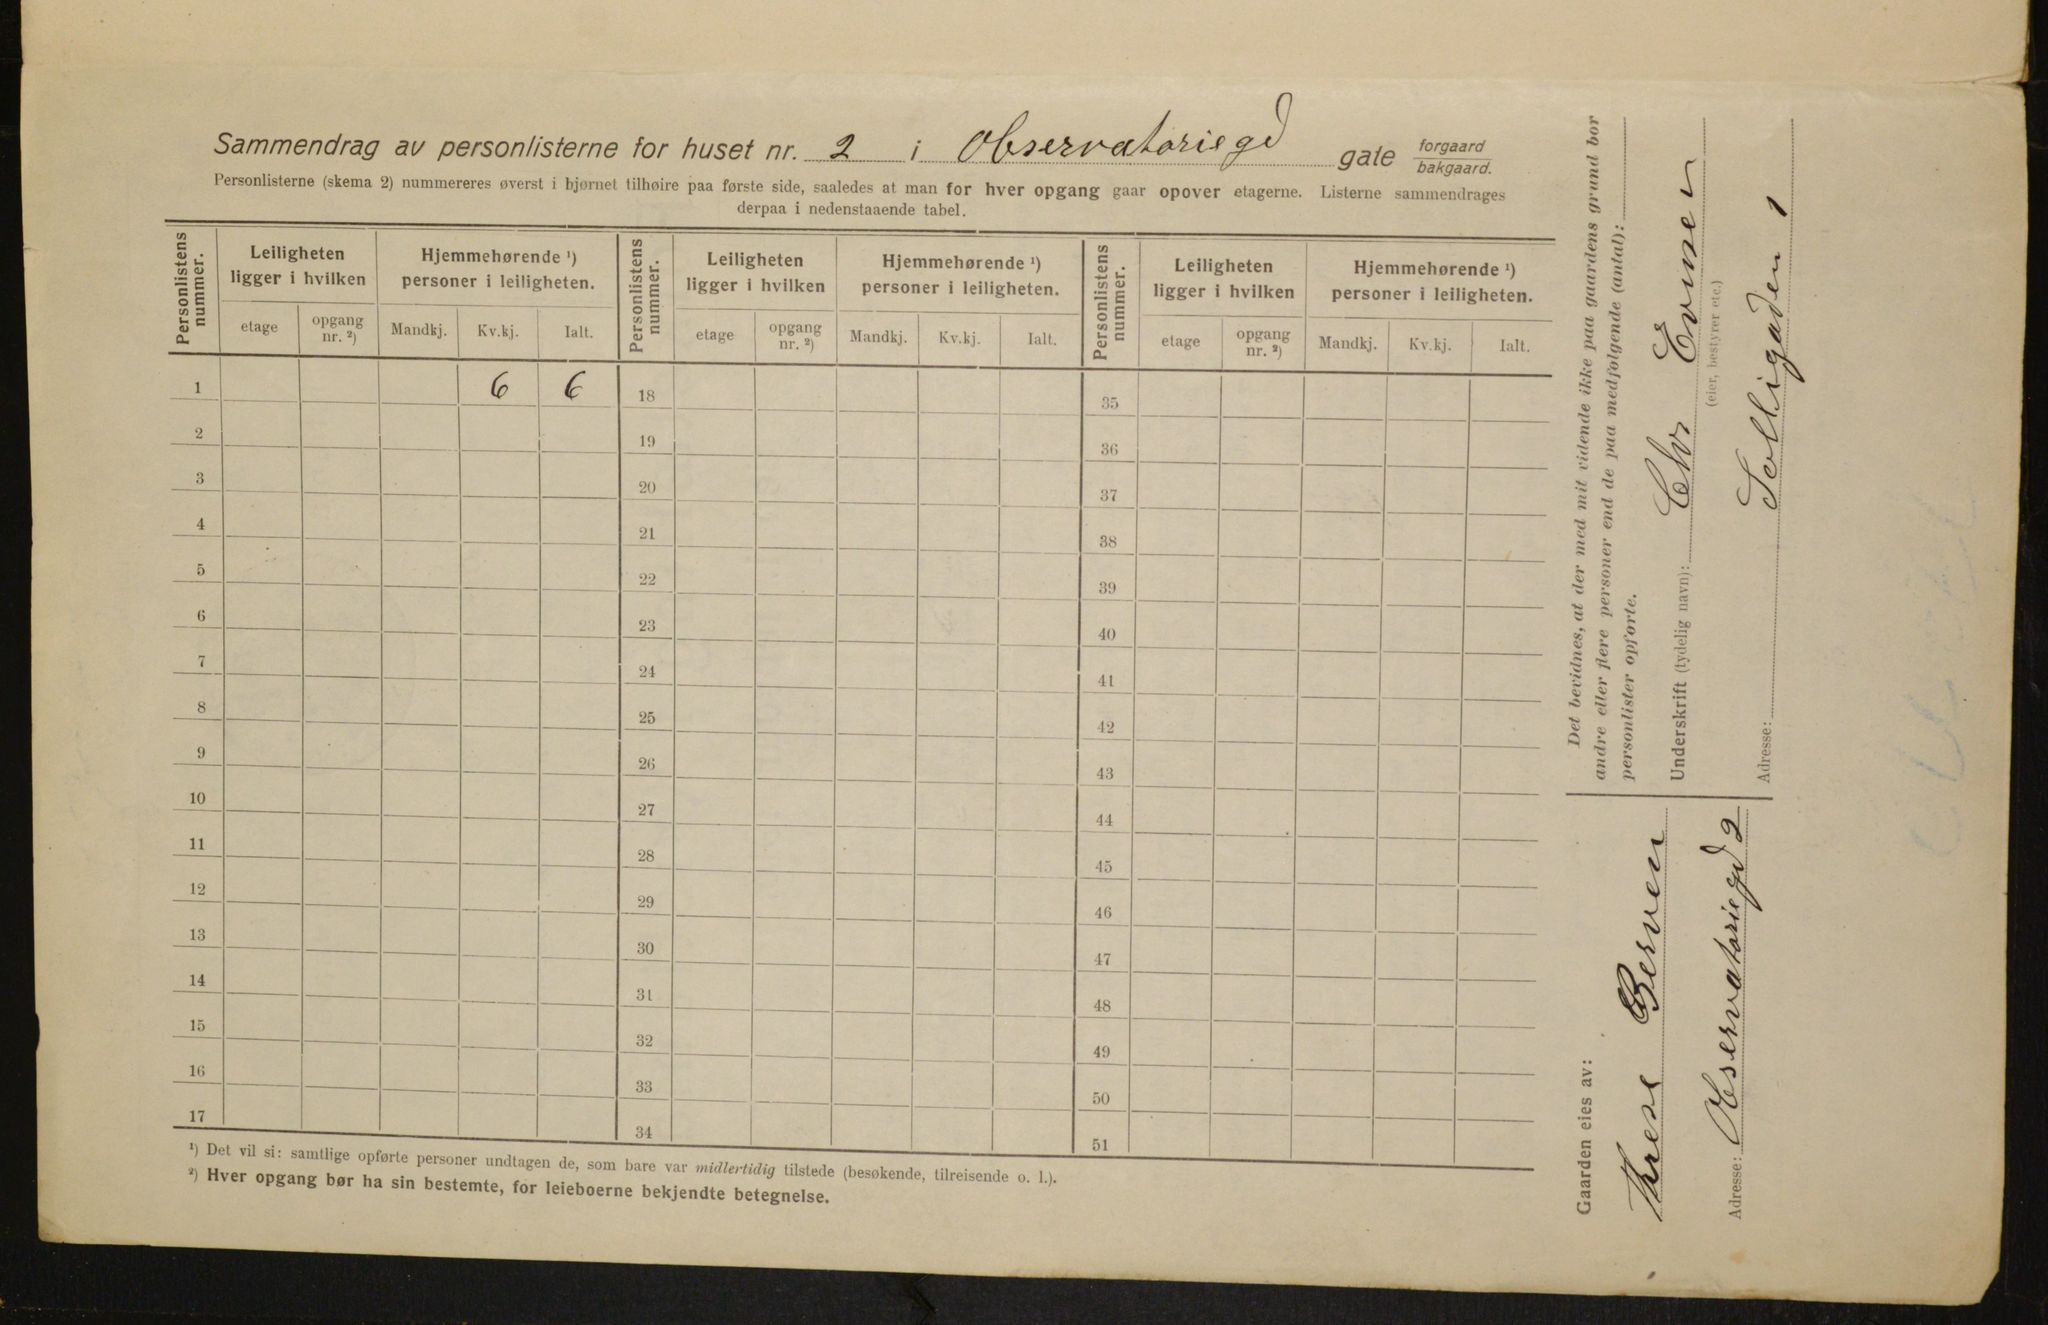 Sammendrag av personlisterne for huset nr. 2 i Observatoriegd gate forgaard/bakgaard.
Personlisterne (skema 2) nummereres øverst i hjørnet tilhøire paa første side, saaledes at man for hver opgang gaar opover etagerne. Listerne sammendrages
derpaa i nedenstaaende tabel.
Personlistens nummer. Leiligheten ligger i hvilken Hjemmehørende ¹) personer i leiligheten. Personlistens nummer. Leiligheten ligger i hvilken Hjemmehørende ¹) personer i leiligheten. Personlistens nummer. Leiligheten ligger i hvilken Hjemmehørende ¹) personer i leiligheten.
etage opgang nr. ²) Mandkj. Kv.kj. Ialt. etage opgang nr. ²) Mandkj. Kv.kj. Ialt. etage opgang nr. ²) Mandkj. Kv.kj. Ialt.
1 6 6 18 35
2 19 36
3 20 37
4 21 38
5 22 39
6 23 40
7 24 41
8 25 42
9 26 43
10 27 44
11 28 45
12 29 46
13 30 47
14 31 48
15 32 49
16 33 50
17 34 51
¹) Det vil si: samtlige opførte personer undtagen de, som bare var midlertidig tilstede (besøkende, tilreisende o. l.).
²) Hver opgang bør ha sin bestemte, for leieboerne bekjendte betegnelse.
Gaarden eies av:
Threse Berven
Adresse: Observatoriegd 2
Det bevidnes, at der med mit vidende ikke paa gaardens grund bor
andre eller flere personer end de paa medfølgende (antal):
personlister opførte.
Underskrift (tydelig navn): Chr. Evensen
(eier, bestyrer etc.)
Adresse: Solligaden 1